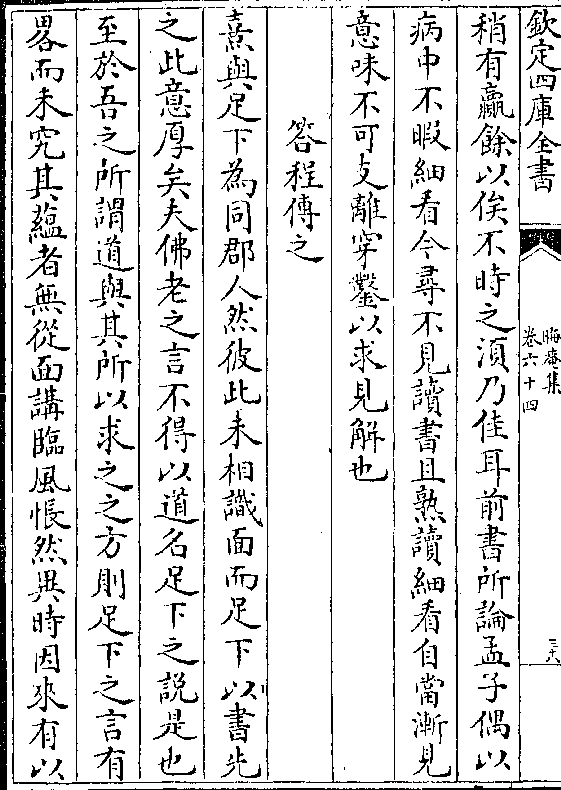 欽定四庫全書
晦庵集
卷六十四
三十八
稍有贏餘以俟不時之須乃佳耳前書所論孟子偶以
病中不暇細看今尋不見讀書且熟讀細看自當漸見
意味不可支離穿鑿以求見解也
答程傳之
熹與足下為同郡人然彼此未相識面而足下以書先
之此意厚矣夫佛老之言不得以道名足下之説是也
至於吾之所謂道與其所以求之之方則足下之言有
畧而未究其藴者無從面講臨風悵然異時因來有以